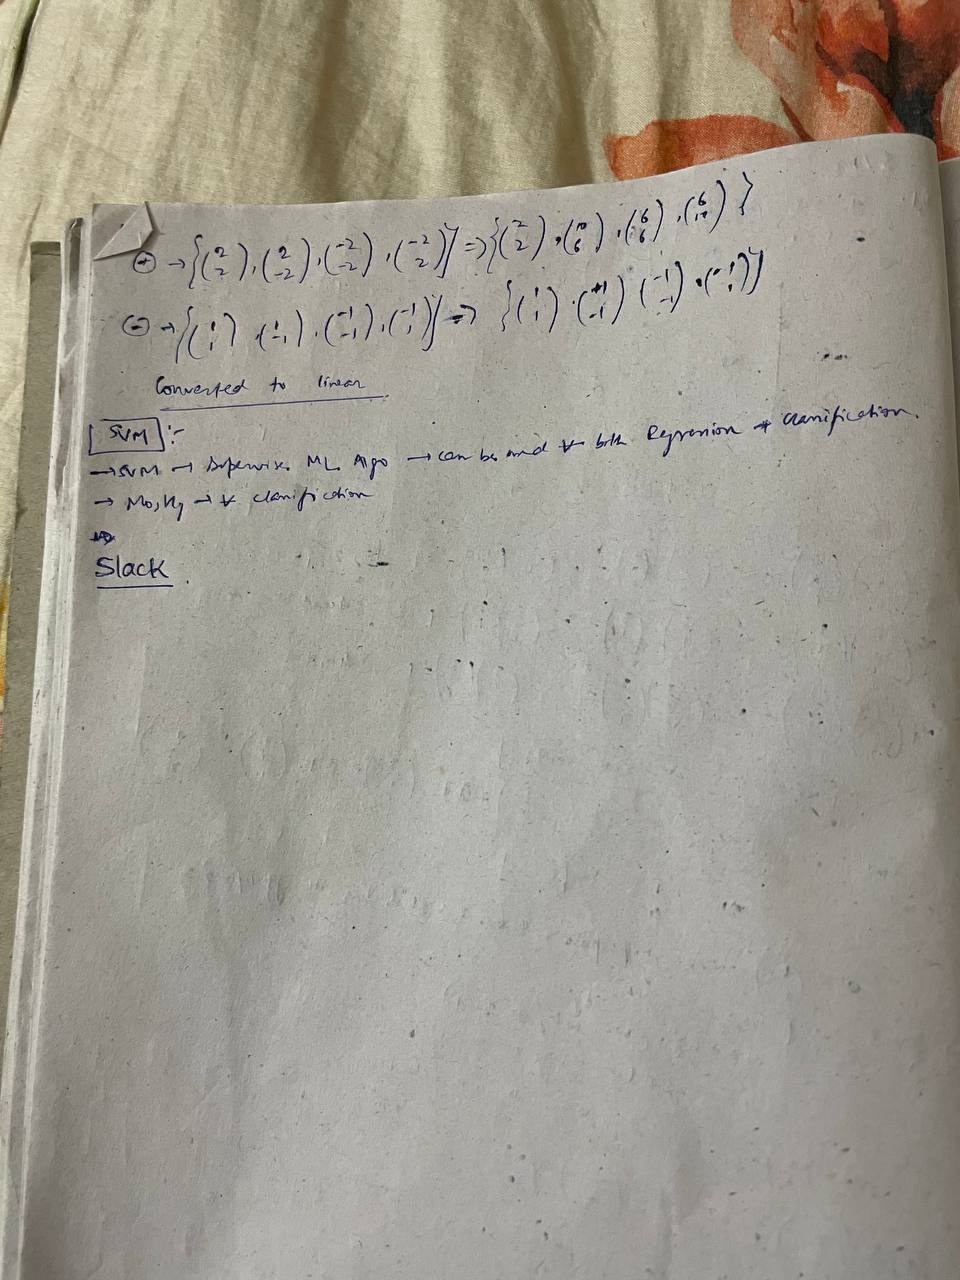 ⊕ → {(2 2), (2 -2), (-2 -2), (-2 2)} ⇒ {(2 2), (10 6), (6 6), (6 10)}
⊖ → {(1 1), (1 -1), (-1 -1), (-1 1)} ⇒ {(1 1), (+1 -1) (-1 -1), (-1 1)}
Converted to linear
SVM :-
→ SVM → Supervise. ML Algo → can be used for both Regression + classification.
→ Mostly → for classification
⇒
Slack